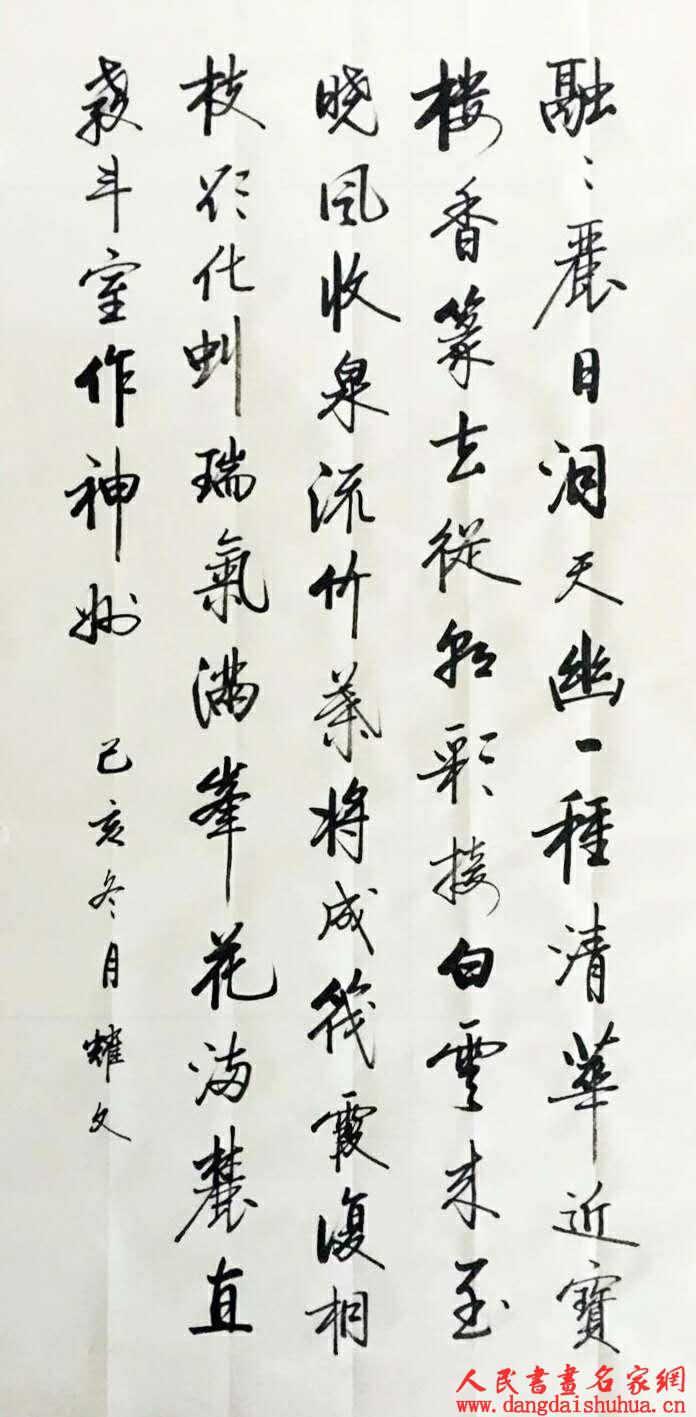 融〻麗日洞天幽一種清華近寶
楼香篆去從虹彩接白雲来至
晓風收泉流竹葉将成筏霞復相
枝欲化虬瑞氣满峯花满麓直
教斗室作神州 己亥冬月耀文
人民書畫名家網
www.dangdaishuhua.cn